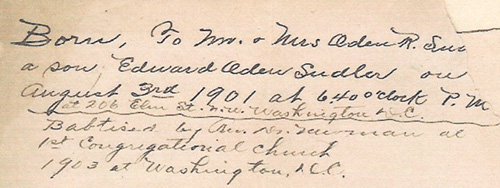 Born, To Mr. & Mrs Oden R. Su
a son Edward Oden Sudler on
August 3rd 1901 at 640 oclock P.M
at 206 Elm St. n.w. Washington D.C.
Babtised by Rev. Dr. Newman at
1st Congregational Church
1903 at Washington, D.C.